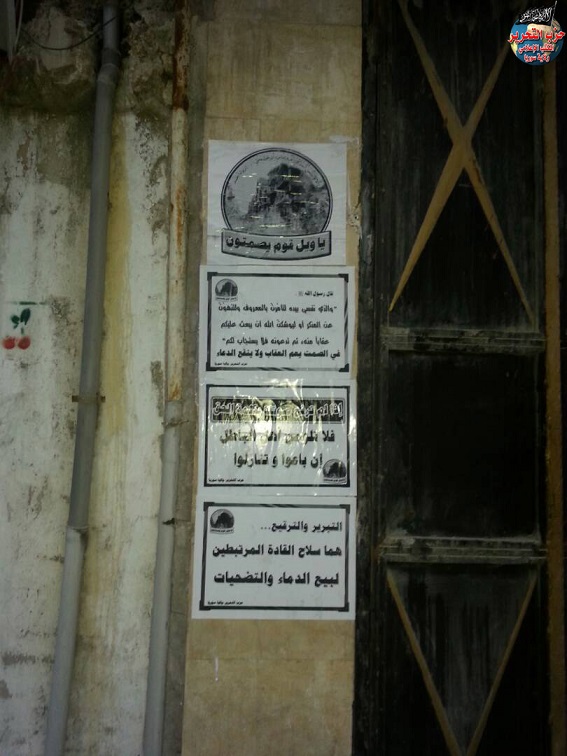 حزب التحرير
المكتب الإعلامي
ولاية سوريا
يا ويل قوم يصمتون
قال رسول الله ﷺ
"والذي نفسي بيده لتأمرن بالمعروف ولتنهون
عن المنكر أو ليوشكن الله أن يبعث عليكم
عقابا منه، ثم تدعونه فلا يستجاب لكم"
في الصمت يعم العقاب ولا ينفع الدعاء
حزب التحرير ولاية سوريا
إذا لم ترفع صوتك بكلمة الحق
فلا تلومن أهل الباطل
إن باعوا و تنازلوا
حزب التحرير ولاية سوريا
التبرير والترقيع...
هما سلاح القادة المرتبطين
لبيع الدماء والتضحيات
حزب التحرير ولاية سوريا